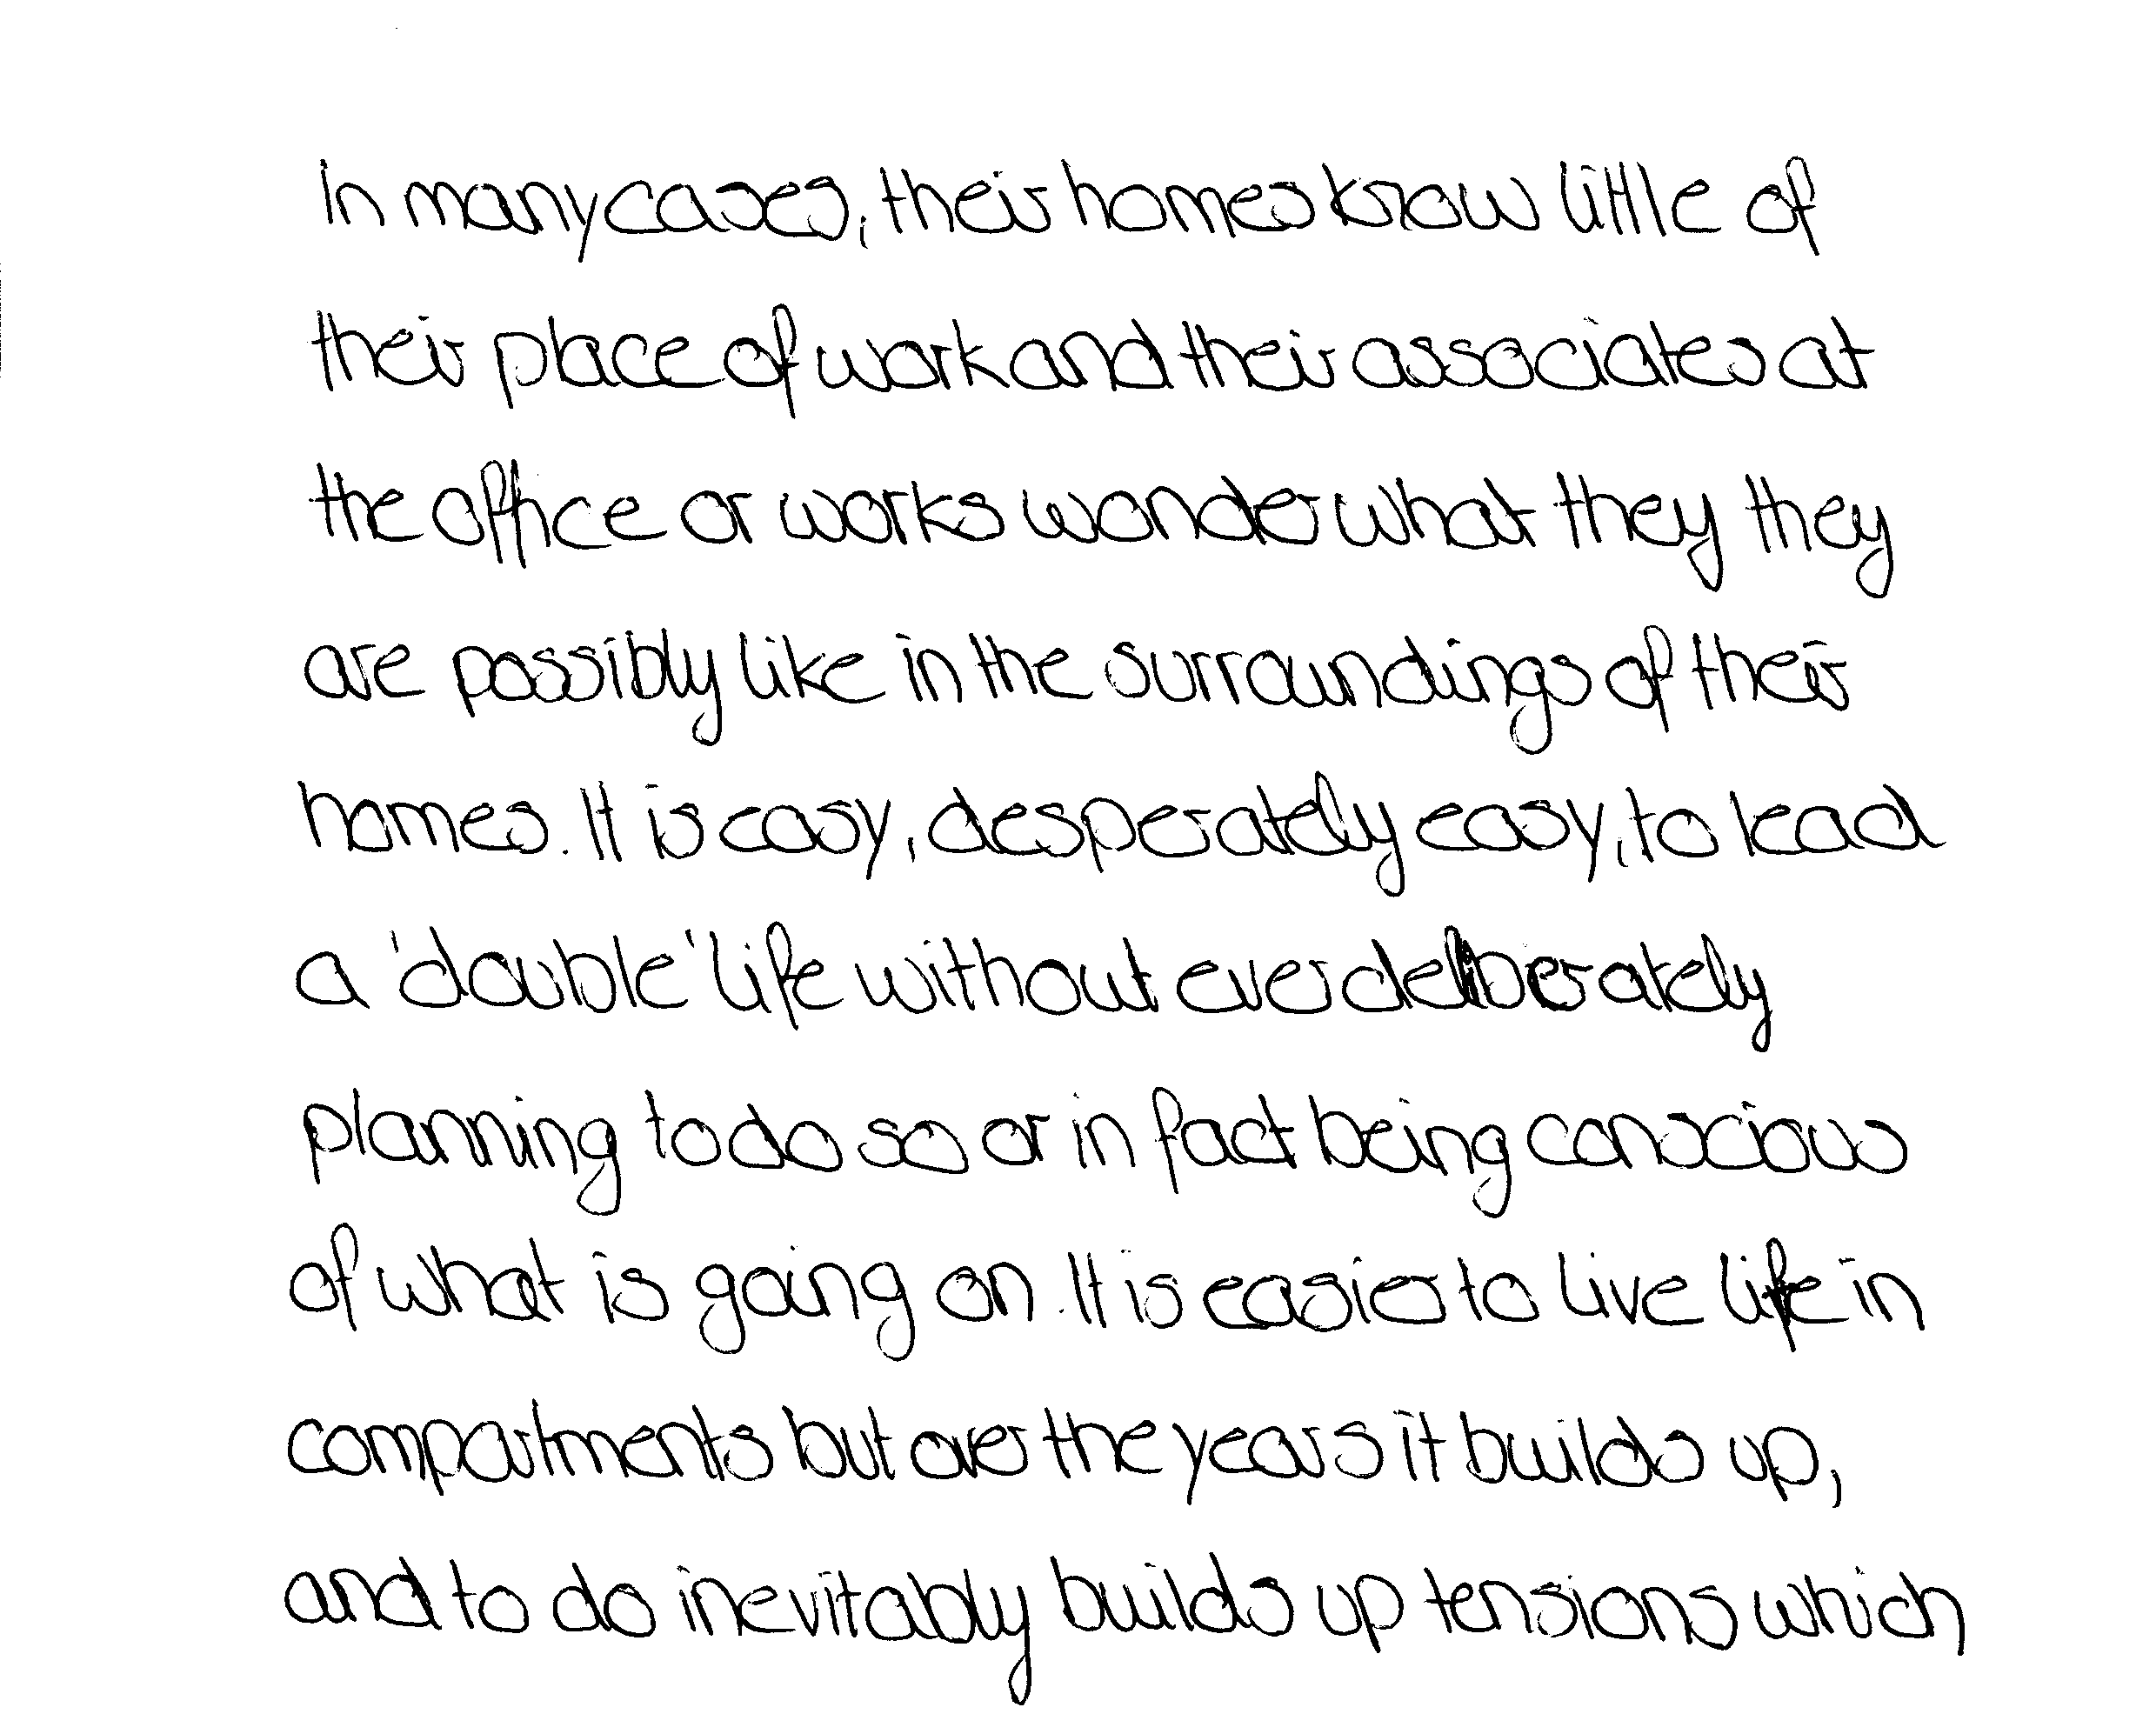 In many cases, their homes know little of
their place of work and their associates at
the office or works wonder what they they
are possibly like in the surroundings of their
homes. It is easy, desperately easy, to lead
a 'double' life without ever deliberately
planning to do so or in fact being conscious
of what is going on. It is easier to live life in
compartments but over the years it builds up,
and to do inevitably builds up tensions which